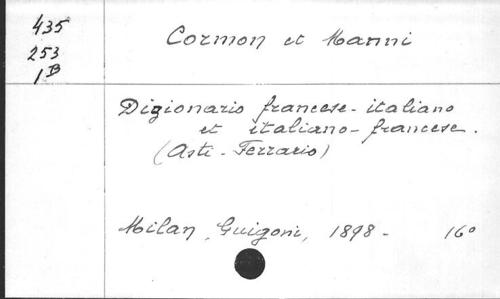 435
253
1B
Cormon et Manni
Dizionario francese-italiano
et italiano-francese.
(Asti-Ferrario)
Milan, Guigoni, 1898- 16°